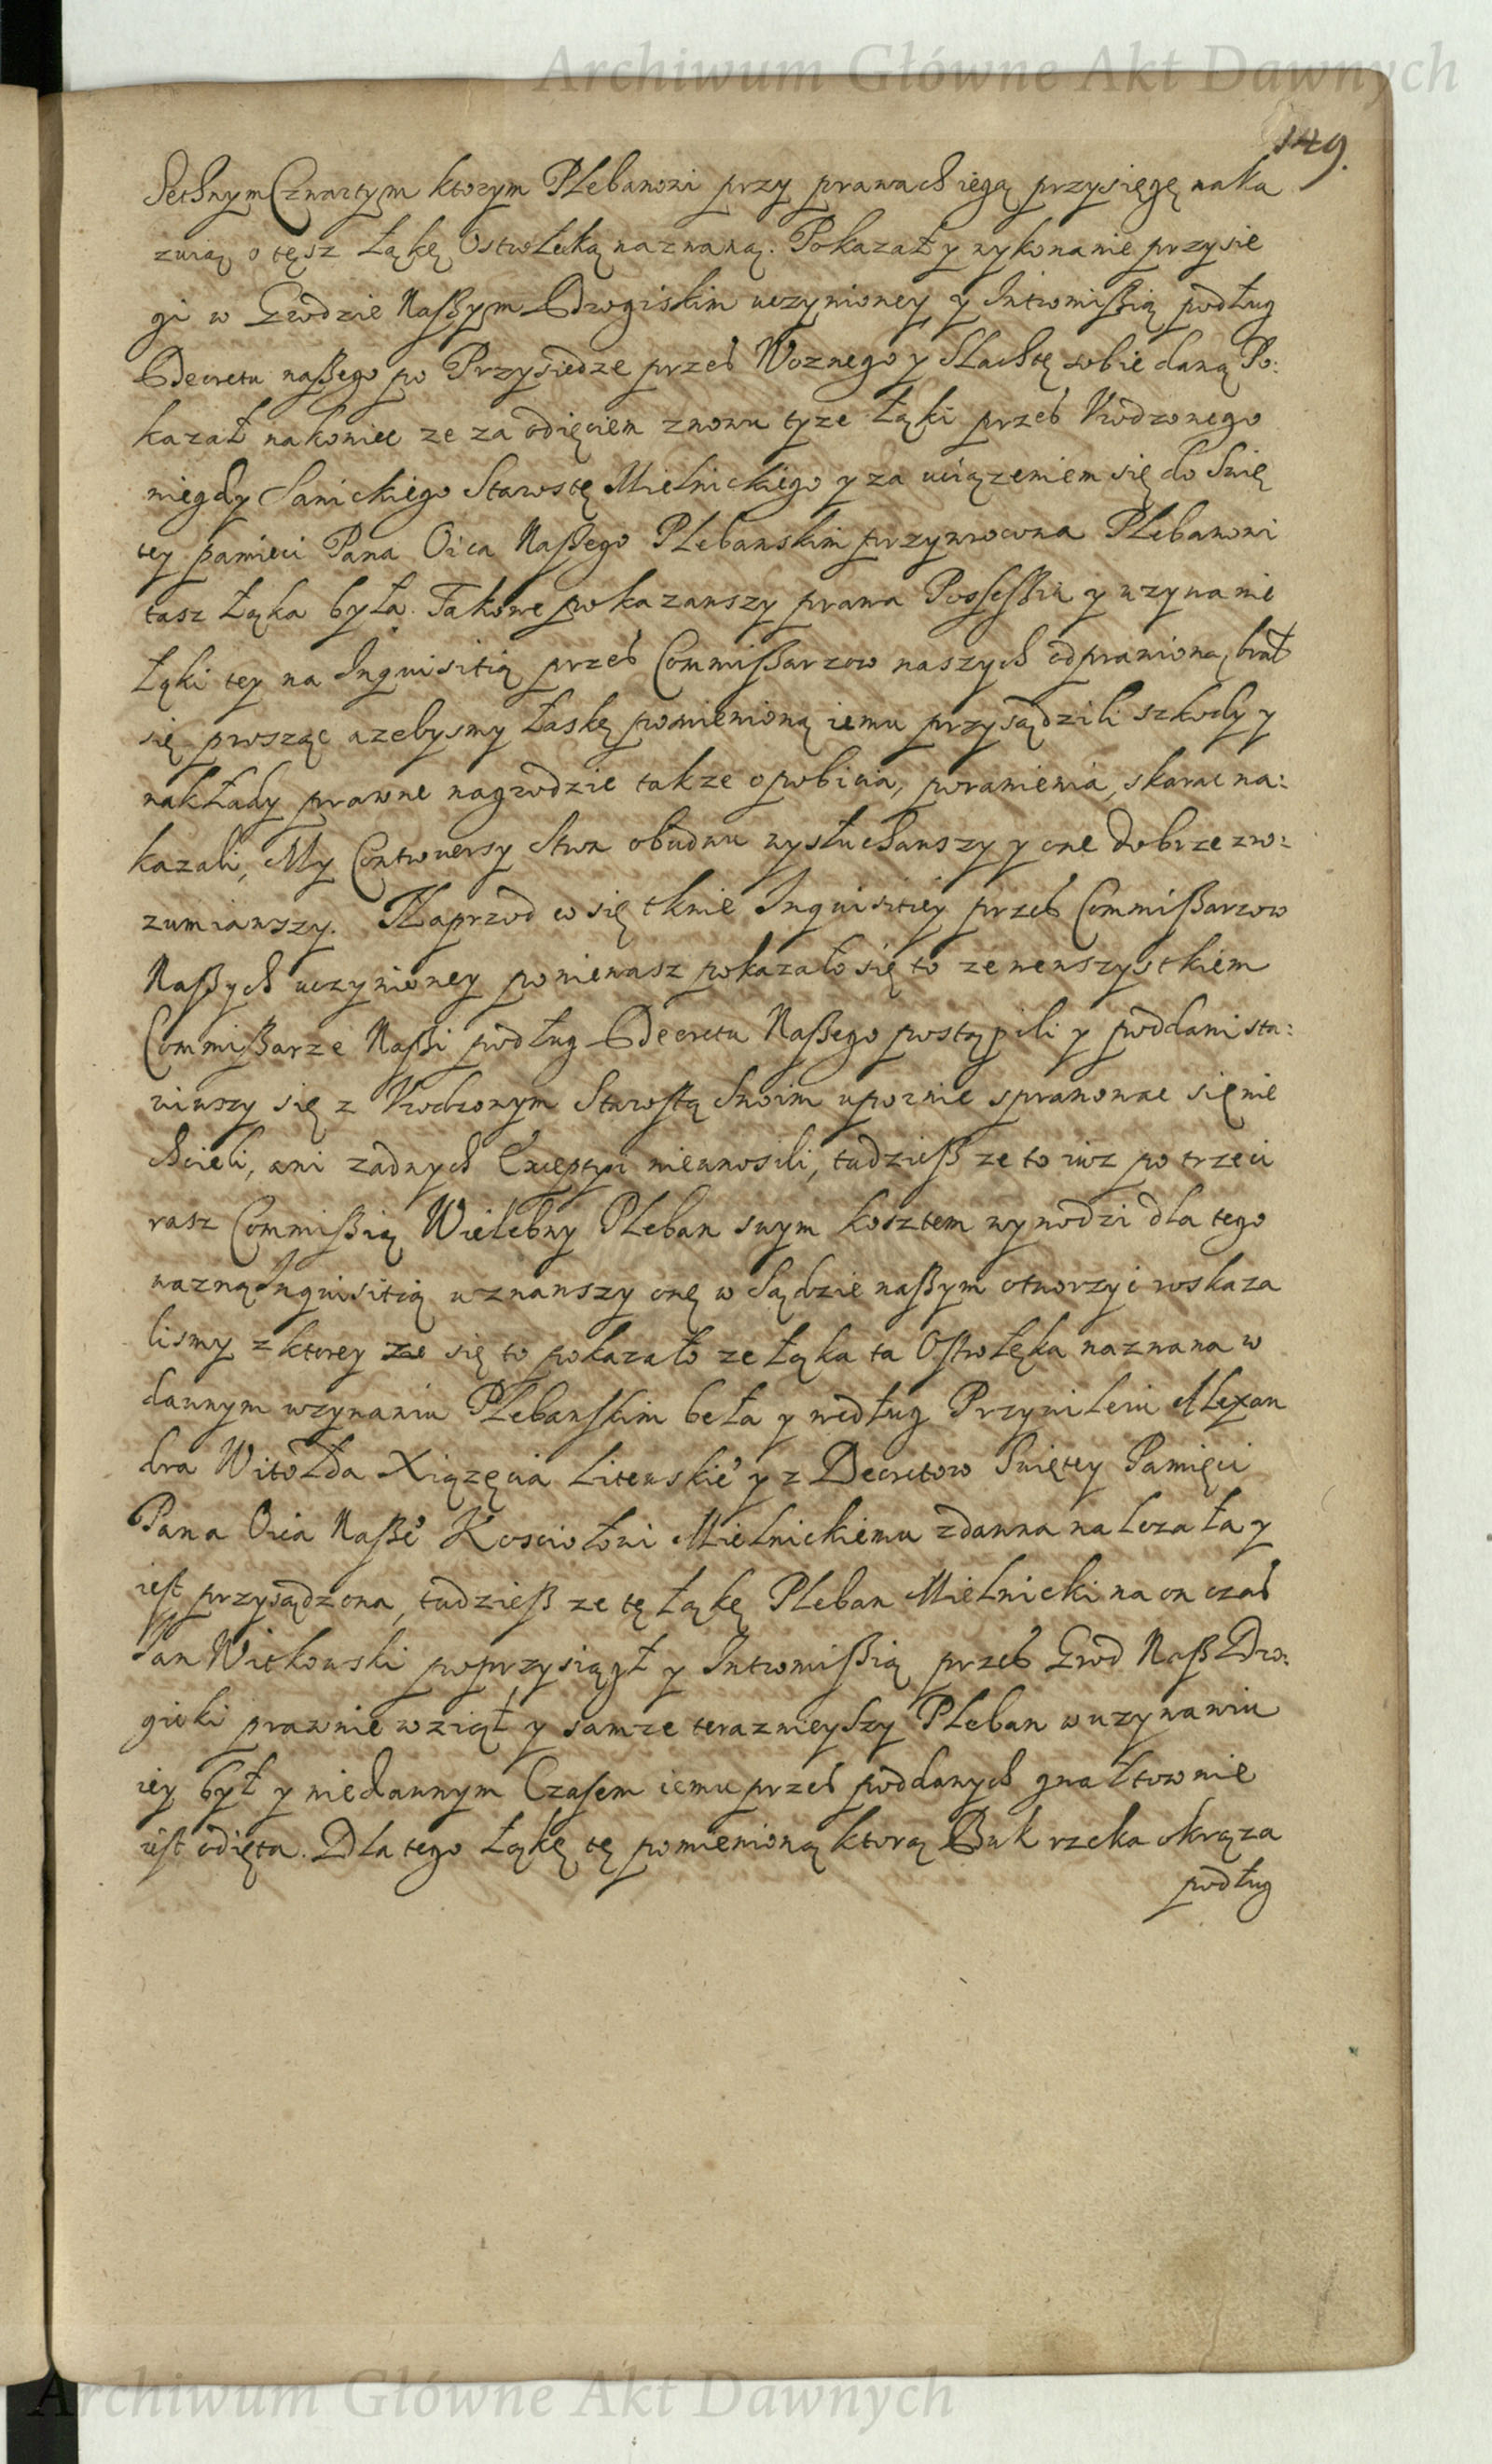 Archiwum Główne Akt Dawnych
149.
Setnym Czwartym ktorym Plebanowi przy prawach iegą przysięgę naka
zuią o tęsz Łąkę Ostrołeką nazwaną. Pokazał y wykonanie przysie
gi w Grodzie Naßym Drogiskim uczynioney y Intromißią podług
Decretu naßego po Przysiedze przes Woznego y Slachtę sobie daną Po:
kazał nakoniec ze za odięciem znowu tyze Łąki przes Vrodzonego
niegdy Sanickiego Starostę Mielnickiego y za uciązeniem się do Swię
tey pamieci Pana Oica Naßego Plebanskim przywrocona Plebanowi
tasz Łąka była. Takowe pokazawszy prawa Posseßiu y uzywanie
Łąki tey na Inquisitią przes Commißarzow naszych odprawioną, brał
się prosząc azebysmy Łaskę pomienioną iemu przysądzili szkody y
nakłady prawne nagrodzic takze o pobicia, poranienia, skarac na:
kazali, My Controuersy stron obudwu wysłuchawszy y one dobrze zro:
zumiawszy. Naprzod co się tknie Inquisitiey przes Commißarzow
Naßych uczynioney poniewasz pokazało się to ze wewszystkiem
Commißarze Naßi podług Decretu Naßego postąpili y poddani sta:
wiwszy się z Vrodzonym Starostą Swoim upornie sprawowac się nie
chcieli, ani zadnych Exceptyi niewnosili, tudzieß ze to iuz po trzeci
rasz Commißią Wielebny Pleban swym kosztem wywodzi dla tego
wazną Inquisitią uznawszy onę w Sądzie naßym otworzyc roskaza
lismy z ktorey ze się to pokazało ze Łąka ta Ostrołęka nazwana w
dawnym uzywaniu Plebanskim beła y według Przywileiu Alexan
dra Witołda Xiązęcia Litewskie° y z Decretow Swiętey Pamięci
Pana Oica Naße° Kosciołowi Mielnickiemu zdawna nalezała y
iest przysądzona, tudzieß ze tę Łąkę Pleban Mielnicki na on czas
Jan Witkowski poprzysiągł y Intromißią przes Grod Naß Dro:
gicki prawnie wziął y samze teraznieyszy Pleban w uzywaniu
iey był y niedawnym Czasem iemu przes poddanych gwałtownie
iest odięta. Dla tego Łąkę tę pomienioną ktorą Buk rzeka okrąza
podług
Archiwum Główne Akt Dawnych